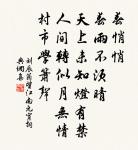 春悄悄
春雨不須晴
天上未知燈有禁
人間轉似月無情
村市學簫聲
劉辰翁望江南元宵